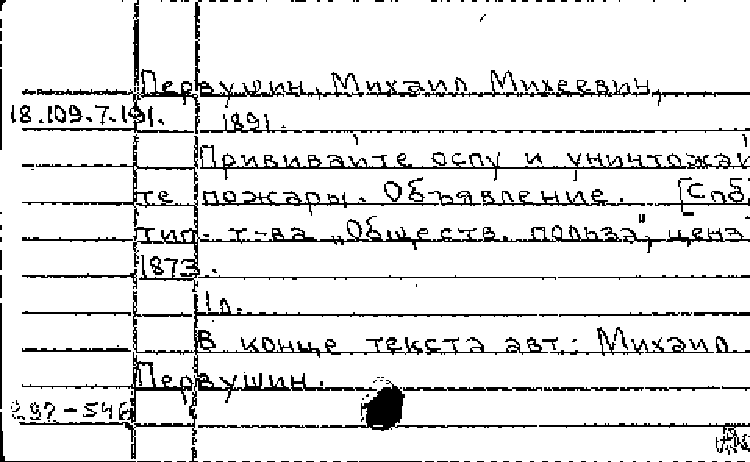 Первушин, Михаил Михеевич,
18.109.7.191.
1891.
Прививайте оспу и уничтожай
те пожары. Объявление. [Спб,
тип. т-ва „Обществ. польза", ценз
1873.
1 л.
В конце текста авт.: Михаил
Первушин.
292-546